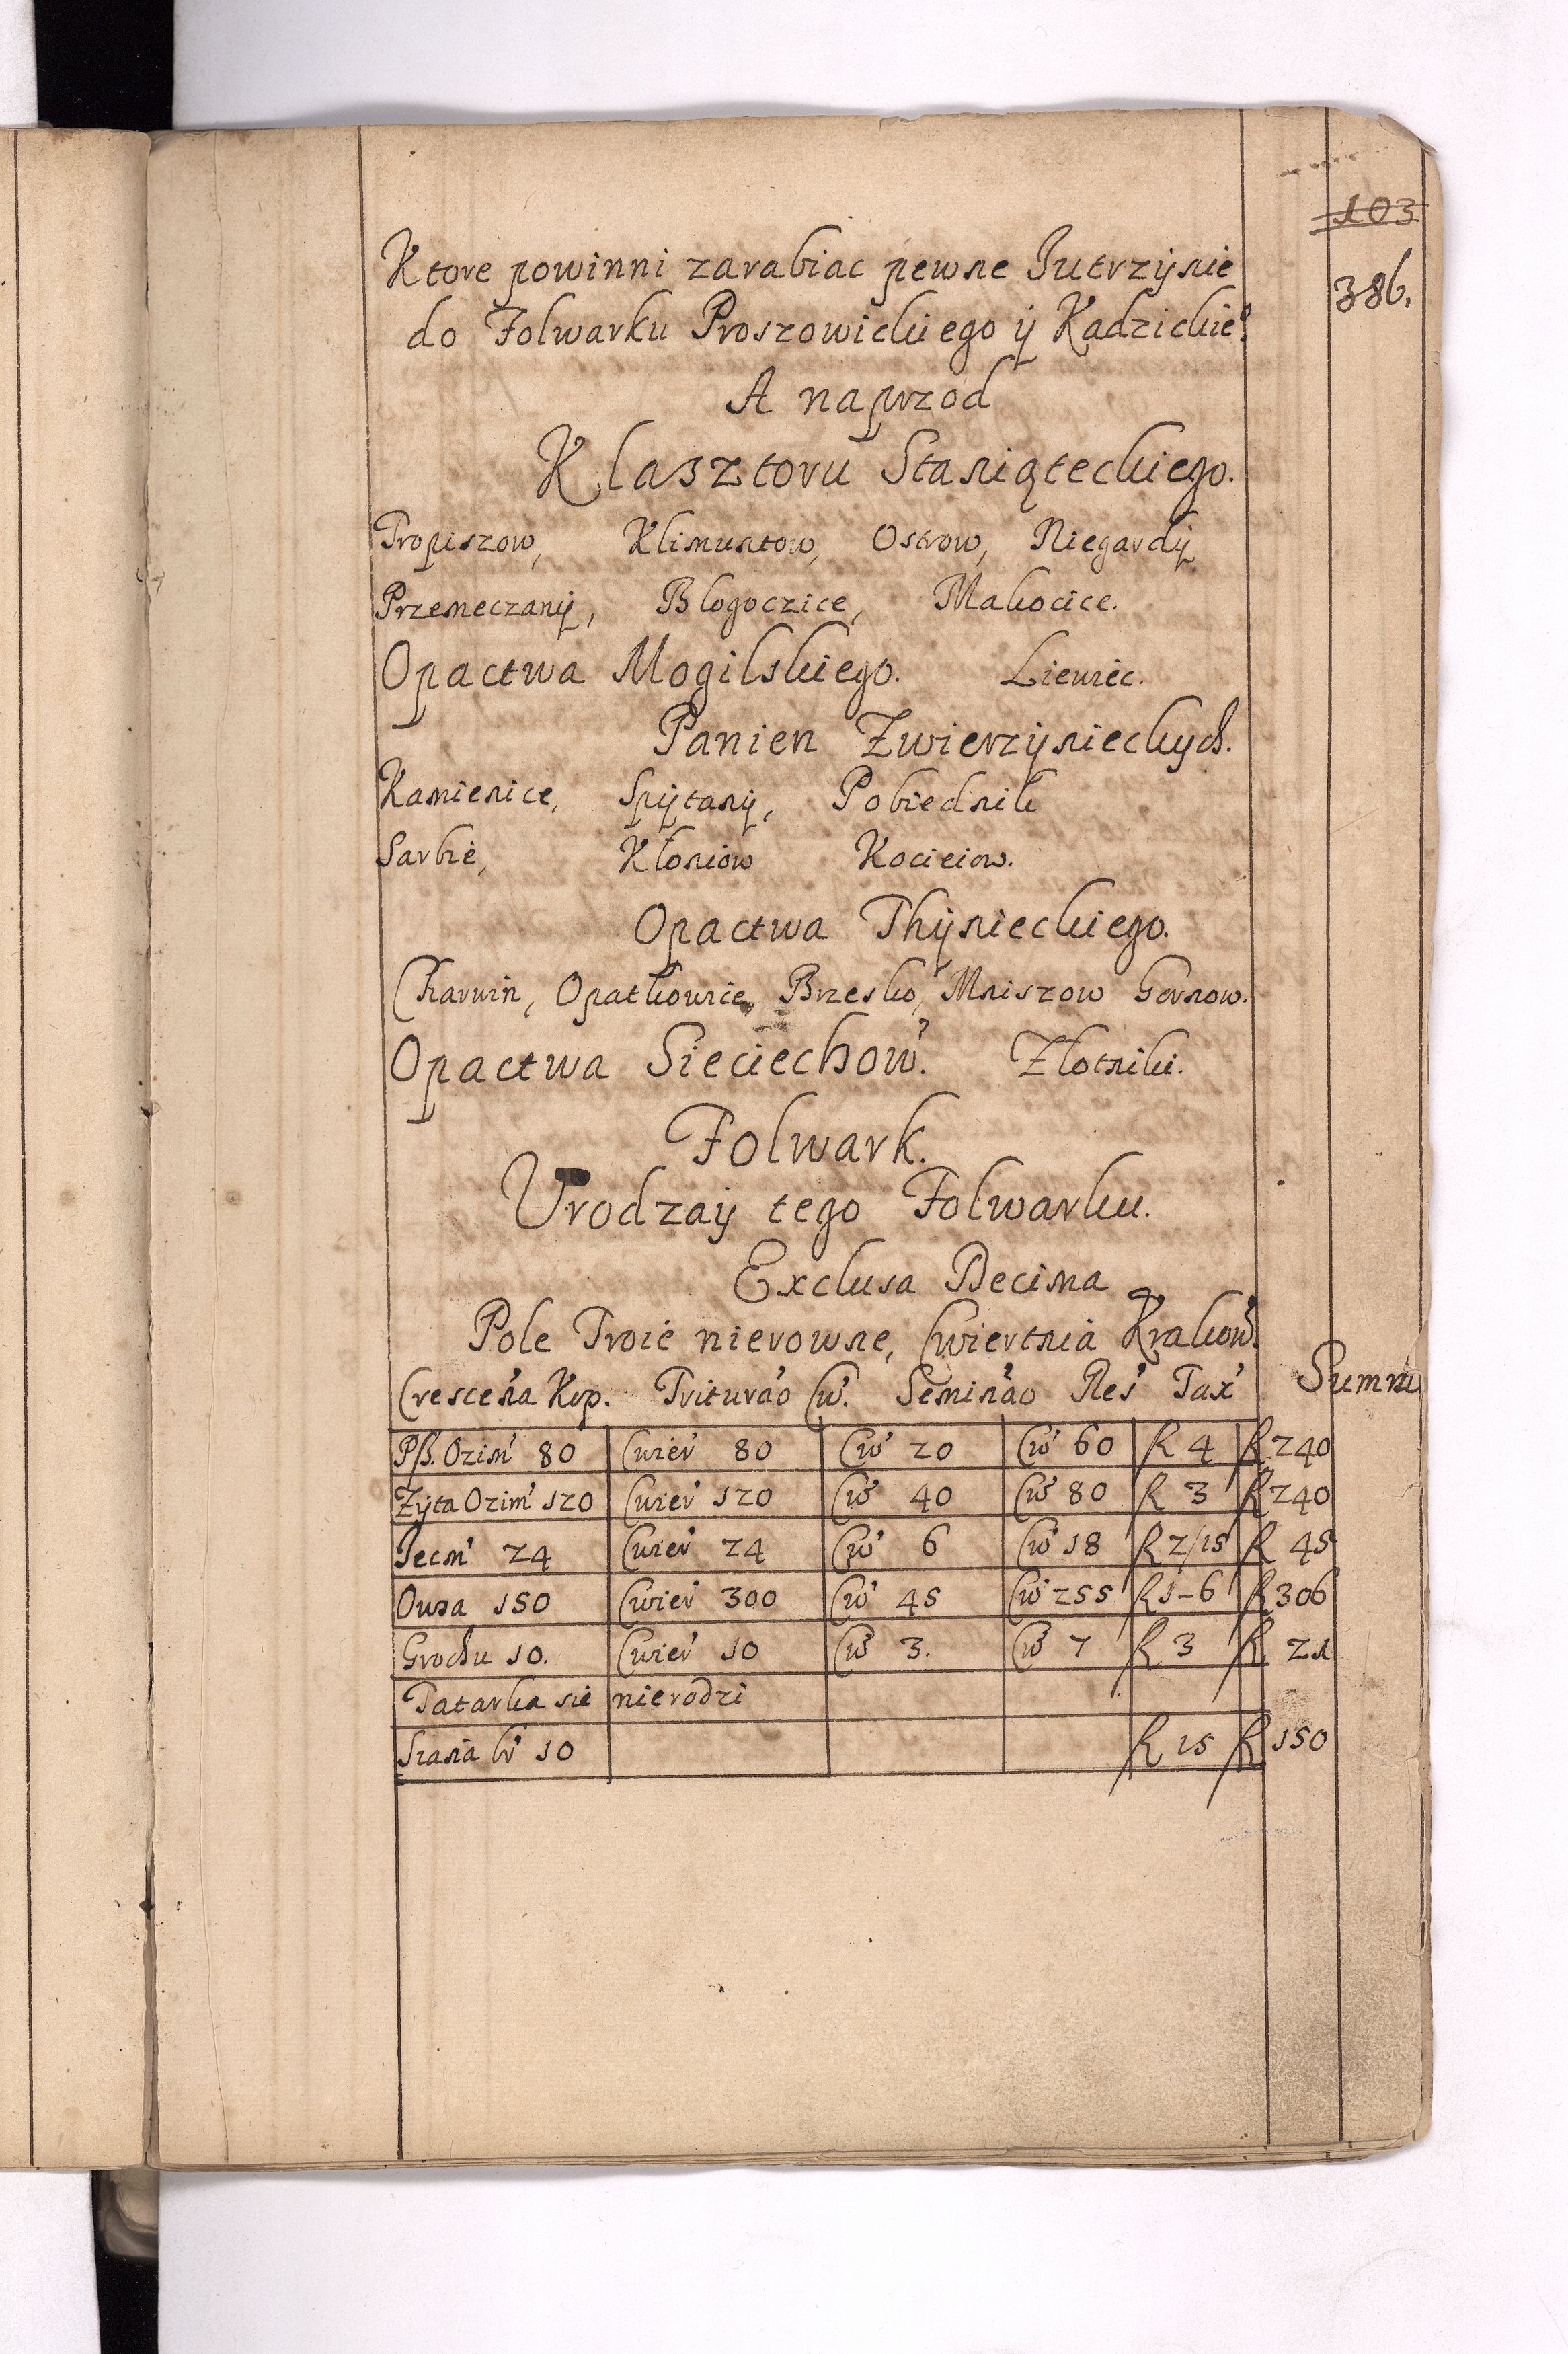 103
386.
Ktore powinni zarabiac pewne Jutrzynie
do Folwarku Proszowickiego ÿ Kadzickie⁰.
A naprzod
Klasztoru Staniąteckiego.
Tropiszow, Klimuntow, Ostrow, Niegardÿ
Przemeczanÿ, Blogoczice, Makocice.
Opactwa Mogilskiego. Liewiec.
Panien Zwierzÿnieckych.
Kamienice, Spÿtanÿ, Pobiednik
Sarbie, Kłoniow Kocieiow.
Opactwa Thÿnieckiego.
Charwin, Opatkowice, Brzesko, Mniszow Gornow.
Opactwa Sieciechow'. Złotniki.
Folwark.
Urodzaÿ tego Folwarku.
Exclusa Decima
Pole Troie nierowne, Cwiertnia Krakow'.
Crescen'a Kop. Triturao' Cw'. Semin'ao Res' Tax' Summ
Pß. Ozim' 80 Cwier' 80 Cw' 20 Cw' 60 f 4 f 240
Zÿta Ozim' 120 Cwier' 120 Cw' 40 Cw' 80 f 3 f 240
Jecm' 24 Cwier' 24 Cw' 6 Cw' 18 f 2/15 f 45
Owsa 150 Cwier' 300 Cw' 45 Cw' 255 f 1-6 f 306
Grochu 10. Cwier' 10 Cw' 3. Cw' 7 f 3 f 21
Tatarka sie nierodzi
Siana 10 f 15 f 150